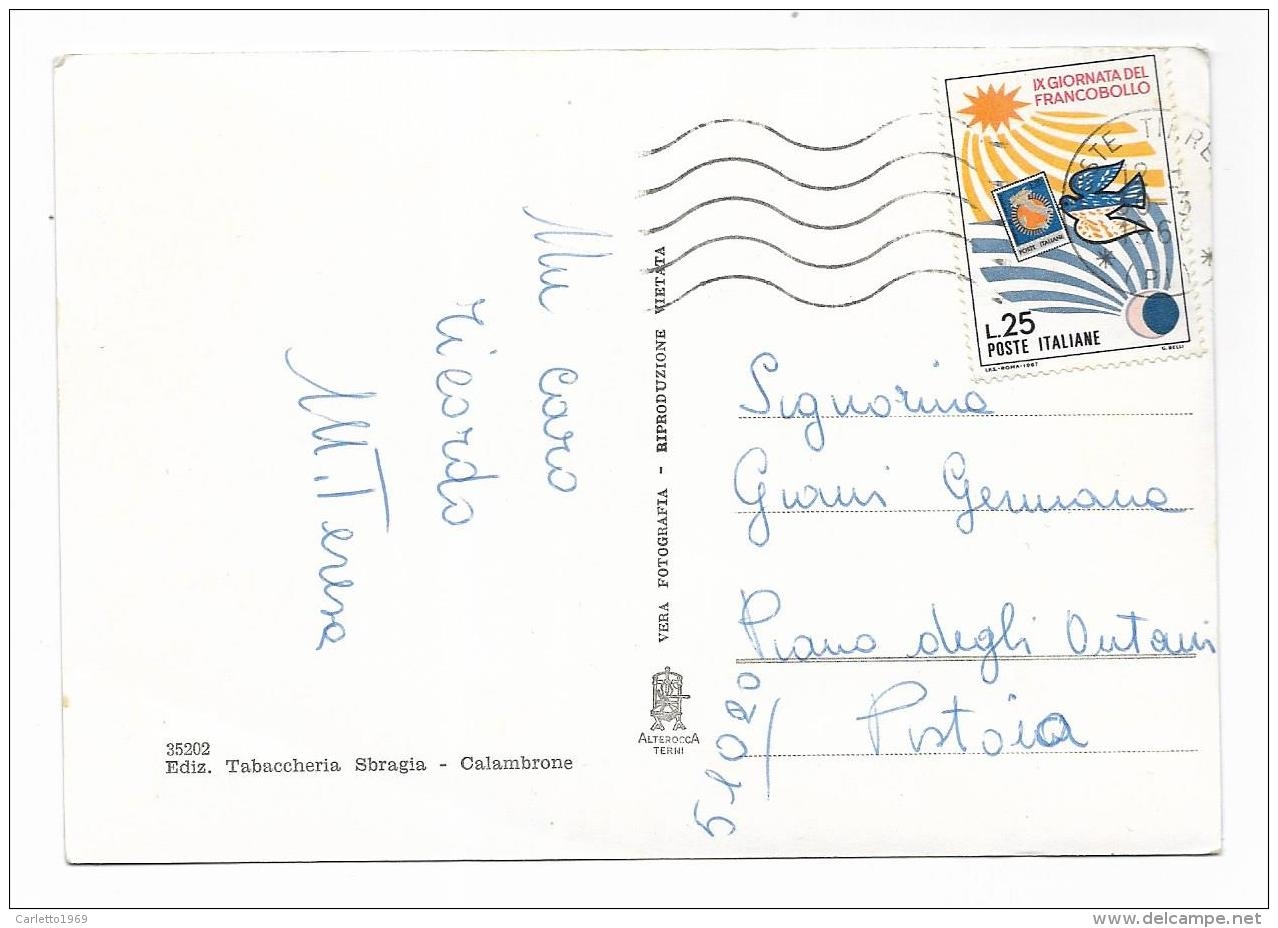 IX GIORNATA DEL
FRANCOBOLLO
POSTE ITALIANE
L.25
POSTE ITALIANE
G. BELLI
I.P.S.-ROMA-1967
Un caro
ricordo
M.Teresa
VERA FOTOGRAFIA - RIPRODUZIONE VIETATA
Signorina
Germana
Piano degli Ontani
51020/
Pistoia
ALTEROCCA
TERNI
35202
Ediz. Tabaccheria Sbragia - Calambrone
Carletto1969
delcampe.net